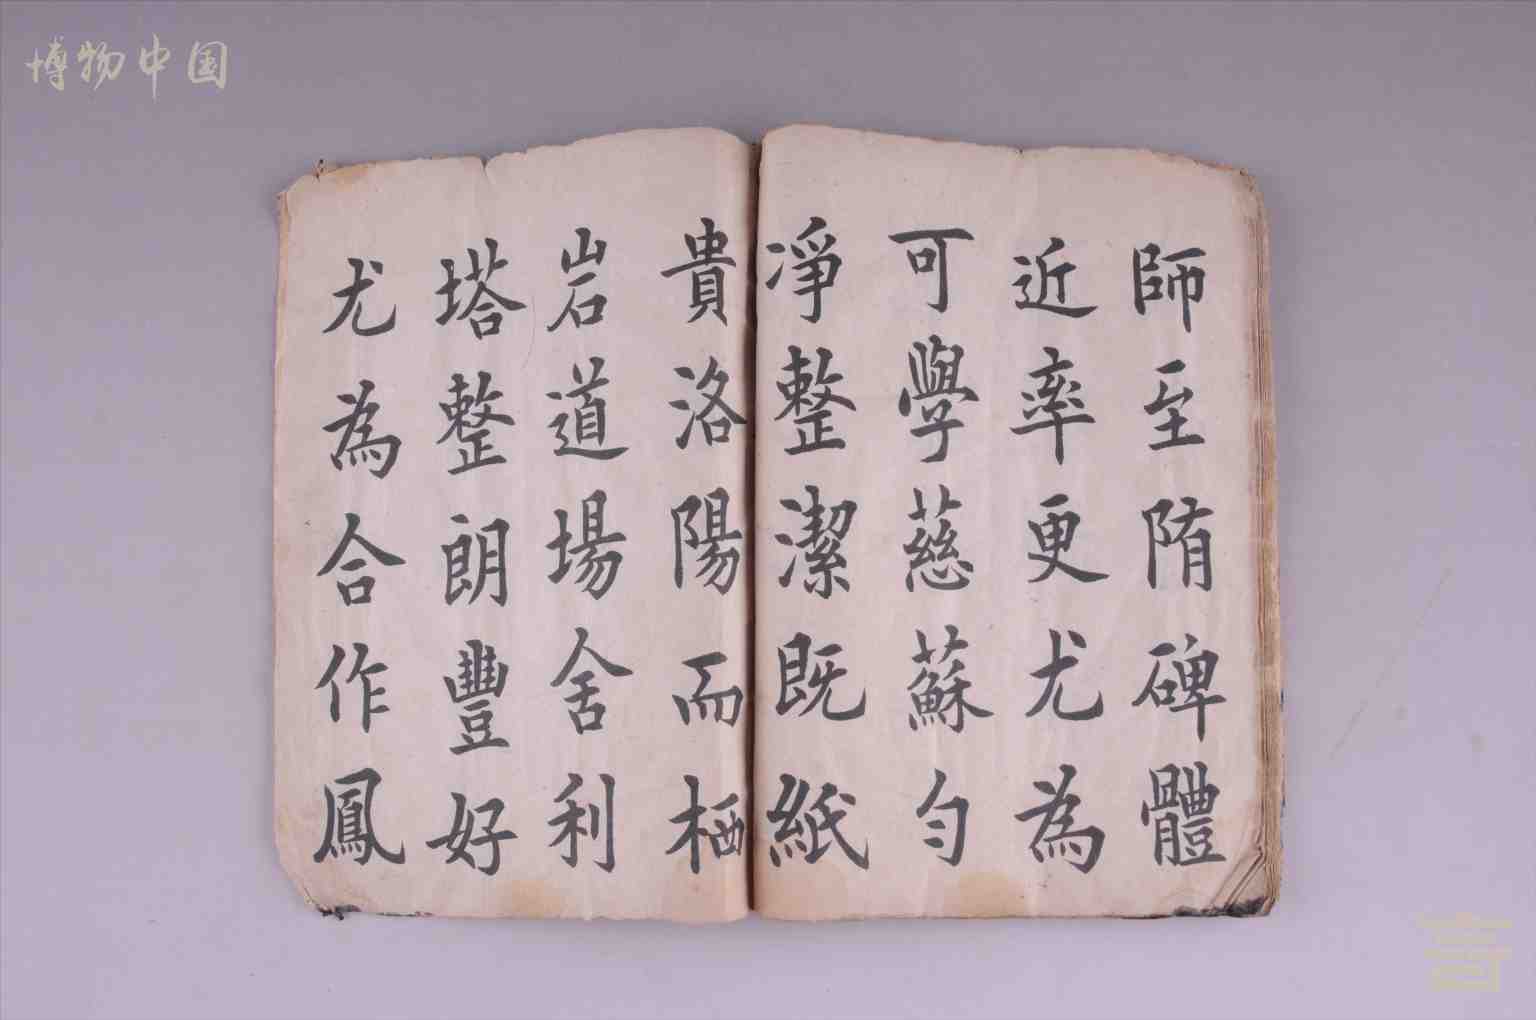 博物中国
師至隋碑體
近率更尤為
可學慈蘇勻
凈整潔既紙
貴洛陽而栖
岩道場舍利
塔整朗豐好
尤為合作鳳